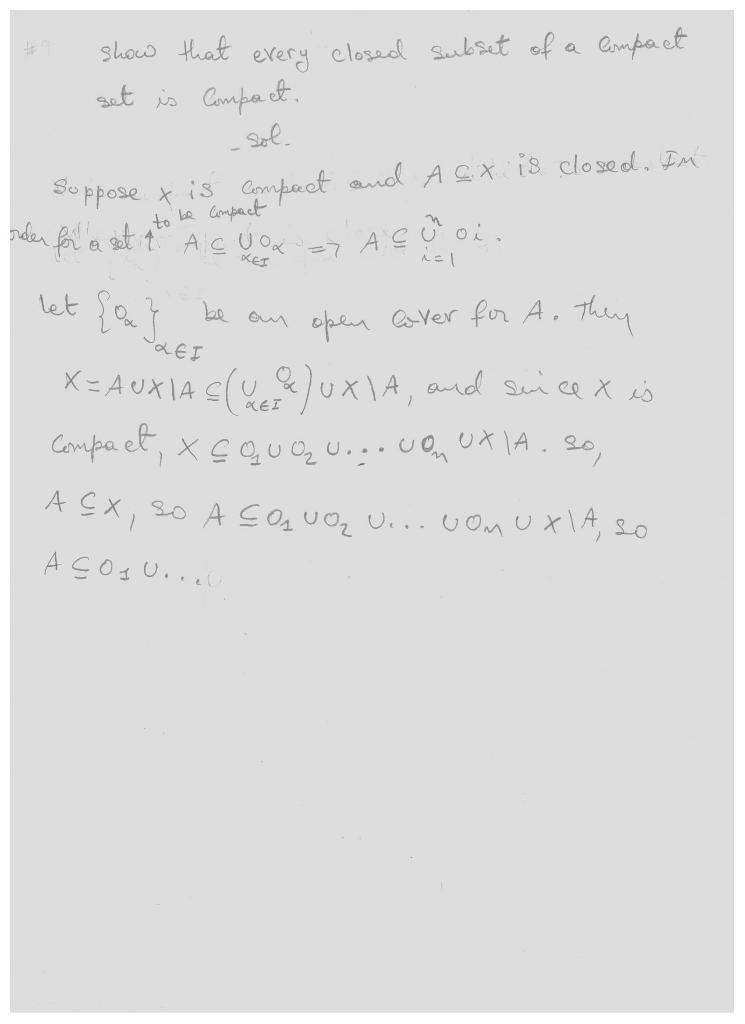 #9 show that every closed subset of a compact
set is compact.
- sol -
Suppose X is compact and A ⊆ X is closed. In
order for a set ↑ to be compact A ⊆ ∪ Oα α∈I => A ⊆ n ∪ i=1 Oi.
let {Oα} α∈I be an open cover for A. Then
X = A ∪ X\A ⊆ (∪ α∈I Oα) ∪ X\A, and since X is
compact, X ⊆ O1 ∪ O2 ∪ ... ∪ On ∪ X\A. so,
A ⊆ X, so A ⊆ O1 ∪ O2 ∪ ... ∪ On ∪ X\A, so
A ⊆ O1 ∪ ...